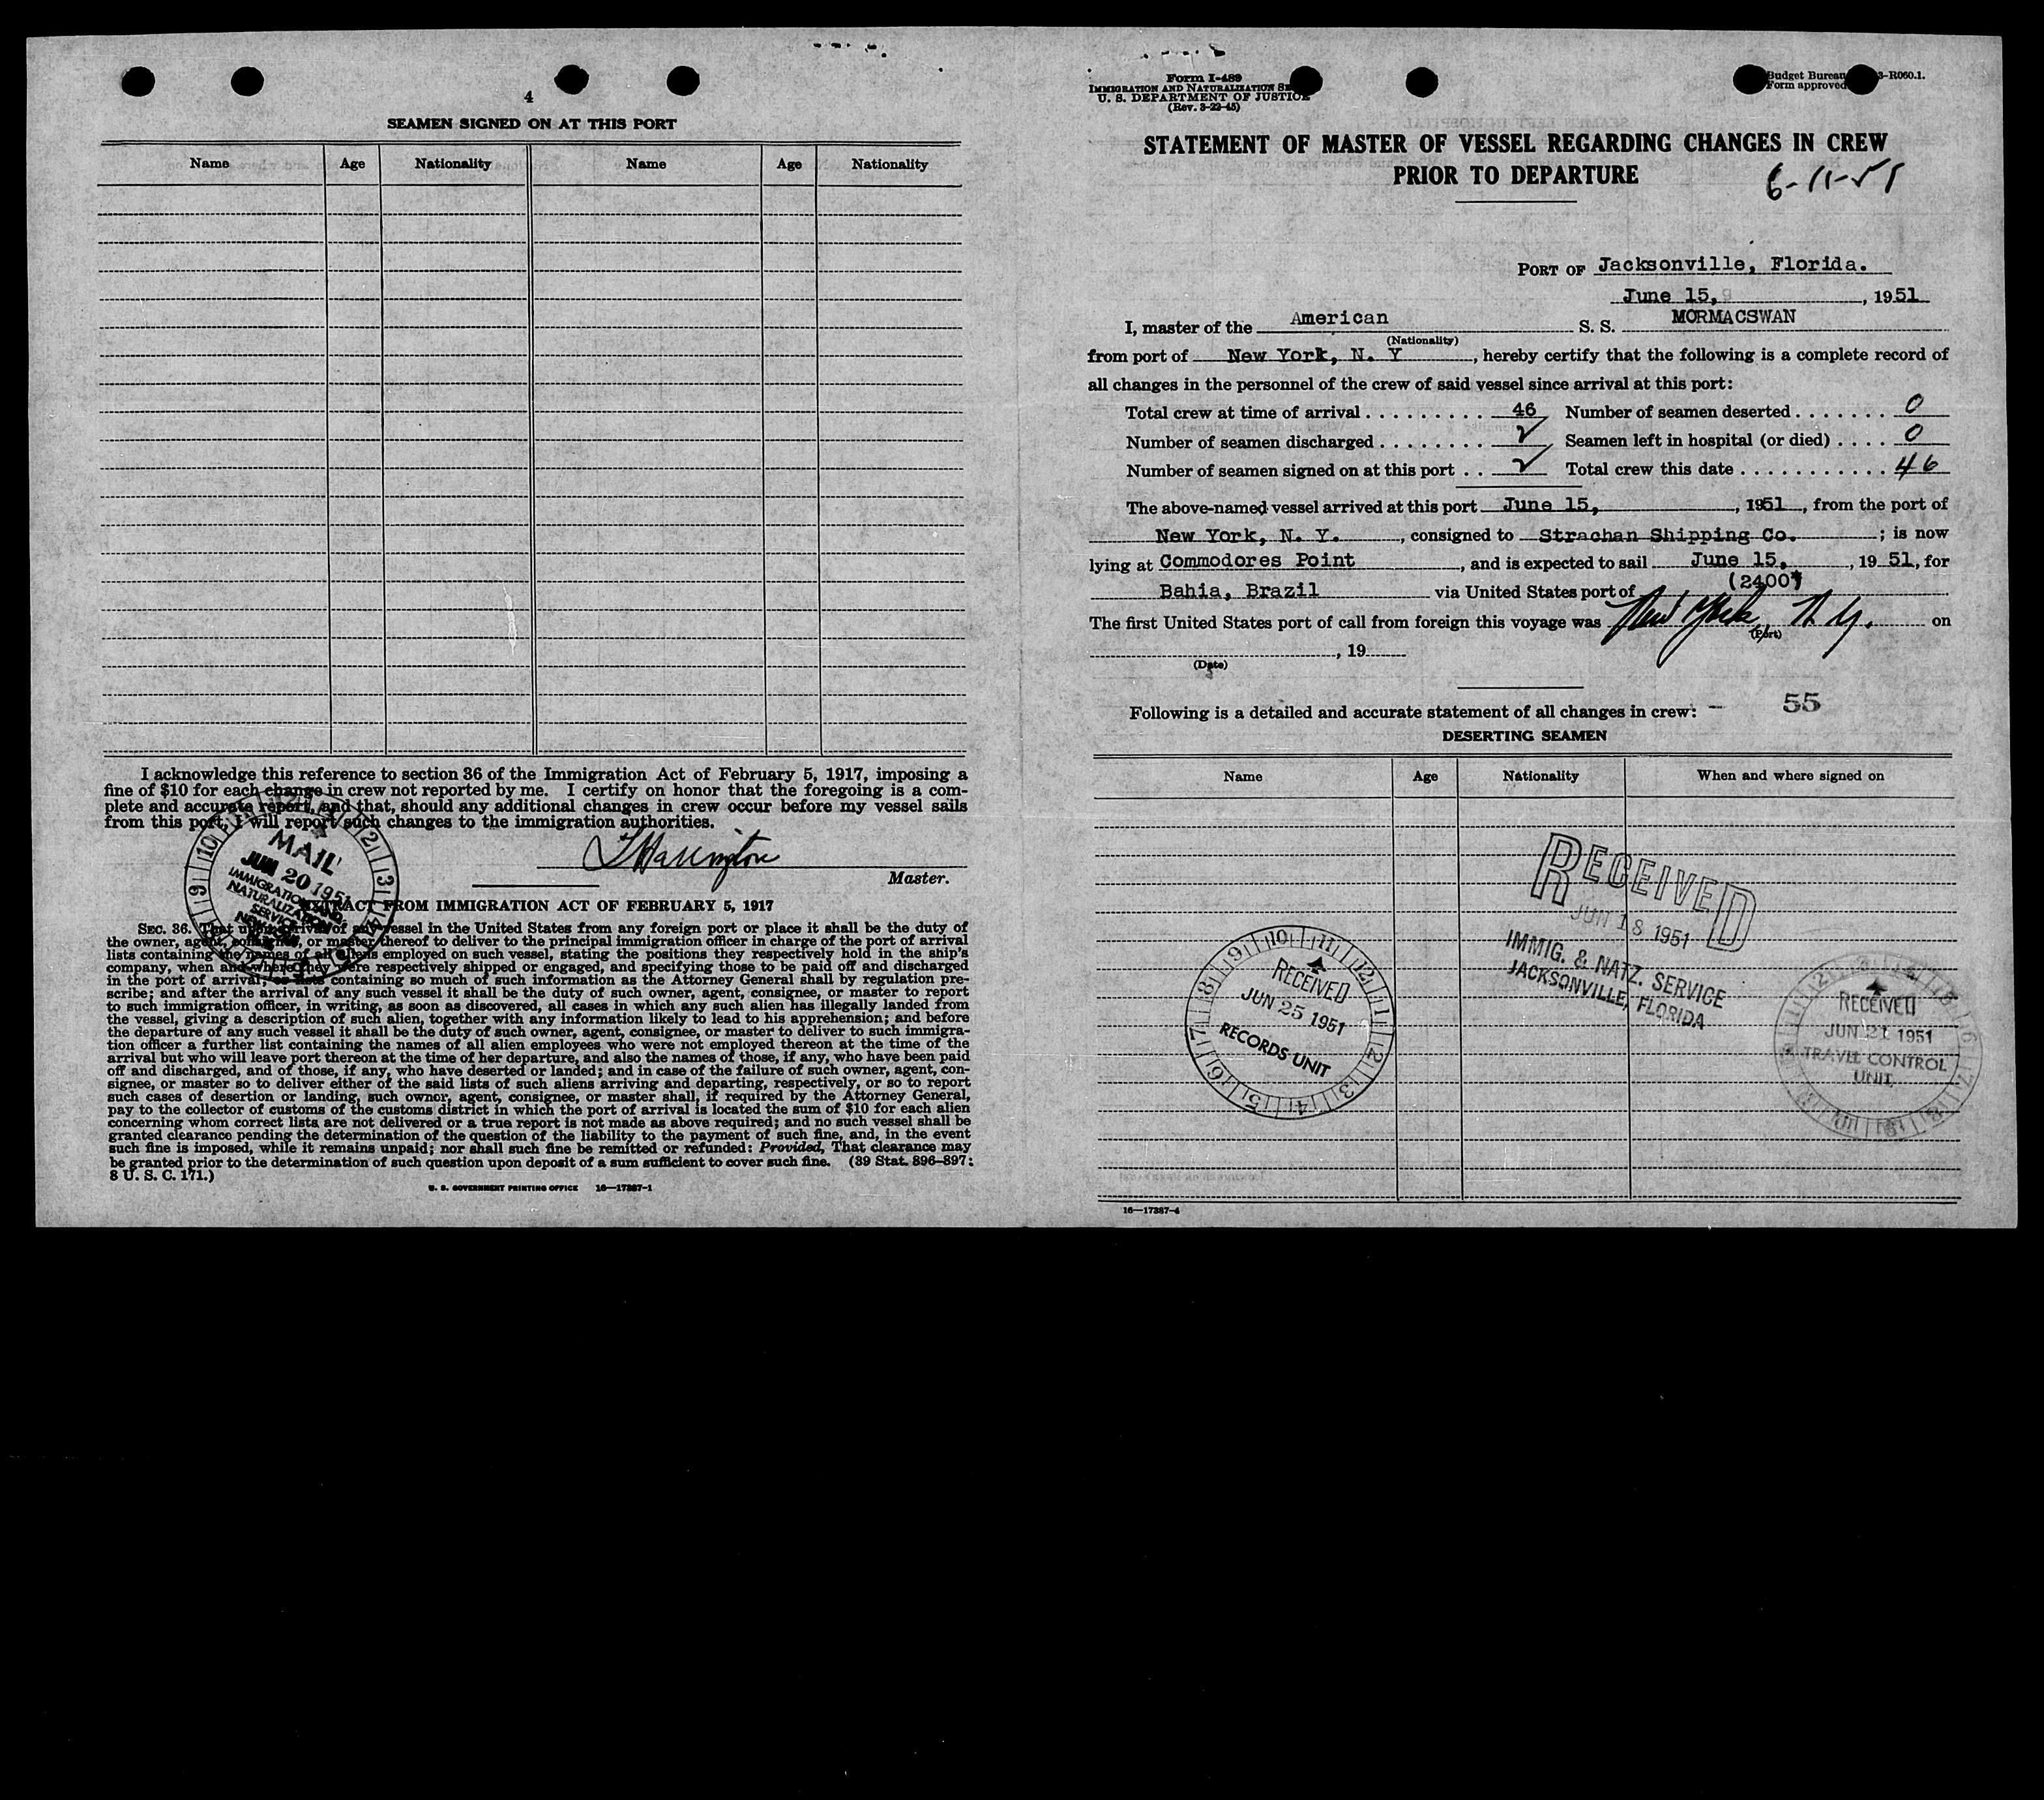 4
SEAMEN SIGNED ON AT THIS PORT
Name Age Nationality Name Age Nationality
I acknowledge this reference to section 36 of the Immigration Act of February 5, 1917, imposing a
fine of $10 for each change in crew not reported by me. I certify on honor that the foregoing is a com-
plete and accurate report, and that, should any additional changes in crew occur before my vessel sails
from this port, I will report such changes to the immigration authorities.
Harrington
Master.
MAIL
JUN 20 1951
IMMIGRATION AND
NATURALIZATION
SERVICE
EXTRACT FROM IMMIGRATION ACT OF FEBRUARY 5, 1917
SEC. 36. That upon arrival of any vessel in the United States from any foreign port or place it shall be the duty of
the owner, agent, consignee, or master thereof to deliver to the principal immigration officer in charge of the port of arrival
lists containing the names of all aliens employed on such vessel, stating the positions they respectively hold in the ship's
company, when and where they were respectively shipped or engaged, and specifying those to be paid off and discharged
in the port of arrival; or lists containing so much of such information as the Attorney General shall by regulation pre-
scribe; and after the arrival of any such vessel it shall be the duty of such owner, agent, consignee, or master to report
to such immigration officer, in writing, as soon as discovered, all cases in which any such alien has illegally landed from
the vessel, giving a description of such alien, together with any information likely to lead to his apprehension; and before
the departure of any such vessel it shall be the duty of such owner, agent, consignee, or master to deliver to such immigra-
tion officer a further list containing the names of all alien employees who were not employed thereon at the time of the
arrival but who will leave port thereon at the time of her departure, and also the names of those, if any, who have been paid
off and discharged, and of those, if any, who have deserted or landed; and in case of the failure of such owner, agent, con-
signee, or master so to deliver either of the said lists of such aliens arriving and departing, respectively, or so to report
such cases of desertion or landing, such owner, agent, consignee, or master shall, if required by the Attorney General,
pay to the collector of customs of the customs district in which the port of arrival is located the sum of $10 for each alien
concerning whom correct lists are not delivered or a true report is not made as above required; and no such vessel shall be
granted clearance pending the determination of the question of the liability to the payment of such fine, and, in the event
such fine is imposed, while it remains unpaid; nor shall such fine be remitted or refunded: Provided, That clearance may
be granted prior to the determination of such question upon deposit of a sum sufficient to cover such fine. (39 Stat. 896-897;
8 U. S. C. 171.)
U. S. GOVERNMENT PRINTING OFFICE 16—17387-1
Form I-489
IMMIGRATION AND NATURALIZATION
U. S. DEPARTMENT OF JUSTICE
(Rev. 3-22-45)
Budget Bureau 3-R060.1.
Form approved
STATEMENT OF MASTER OF VESSEL REGARDING CHANGES IN CREW
PRIOR TO DEPARTURE
6-11-51
PORT OF Jacksonville, Florida.
June 15, , 1951
I, master of the American S. S. MORMACSWAN
(Nationality)
from port of New York, N. Y , hereby certify that the following is a complete record of
all changes in the personnel of the crew of said vessel since arrival at this port:
Total crew at time of arrival . . . . . . . . . 46 Number of seamen deserted . . . . . . . 0
Number of seamen discharged . . . . . . . . ✓ Seamen left in hospital (or died) . . . . 0
Number of seamen signed on at this port . . ✓ Total crew this date . . . . . . . . . . . 46
The above-named vessel arrived at this port June 15, , 1951 , from the port of
New York, N. Y. , consigned to Strachan Shipping Co. ; is now
lying at Commodores Point , and is expected to sail June 15, , 19 51, for
(2400)
Bahia, Brazil via United States port of
The first United States port of call from foreign this voyage was New York, N. Y. on
(Port)
, 19
(Date)
Following is a detailed and accurate statement of all changes in crew: - 55
DESERTING SEAMEN
Name Age Nationality When and where signed on
RECEIVED
JUN 18 1951
IMMIG. & NATZ. SERVICE
JACKSONVILLE, FLORIDA
RECEIVED
JUN 25 1951
RECORDS UNIT
RECEIVED
JUN 21 1951
TRAVEL CONTROL
UNIT
16—17387-4